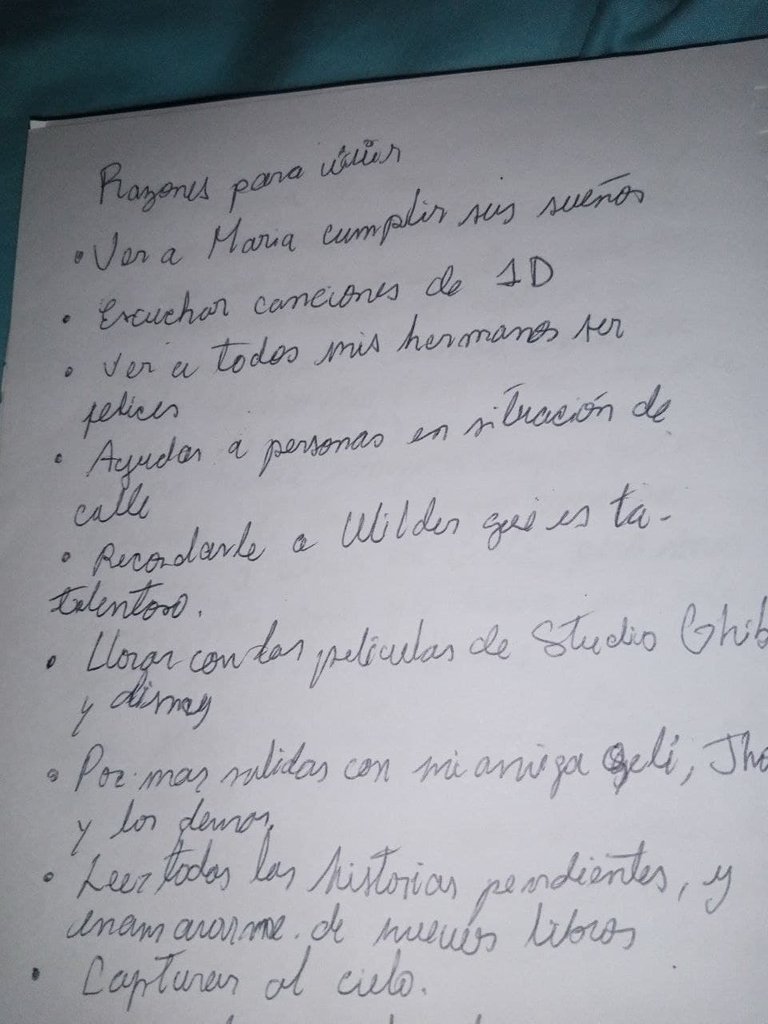 Razones para vivir
• Ver a Maria cumplir sus sueños
• Escuchar canciones de 1D
• Ver a todos mis hermanos ser
felices
• Ayudar a personas en situación de
calle
• Recordarle a Wilder que es ta-
talentoso.
• Llorar con las películas de Studio Ghib
y disney
• Por mas salidas con mi amiga Jho
y los demas,
• Leer todas las historias pendientes, y
enamorarme de nuevos libros
• Capturar al cielo.